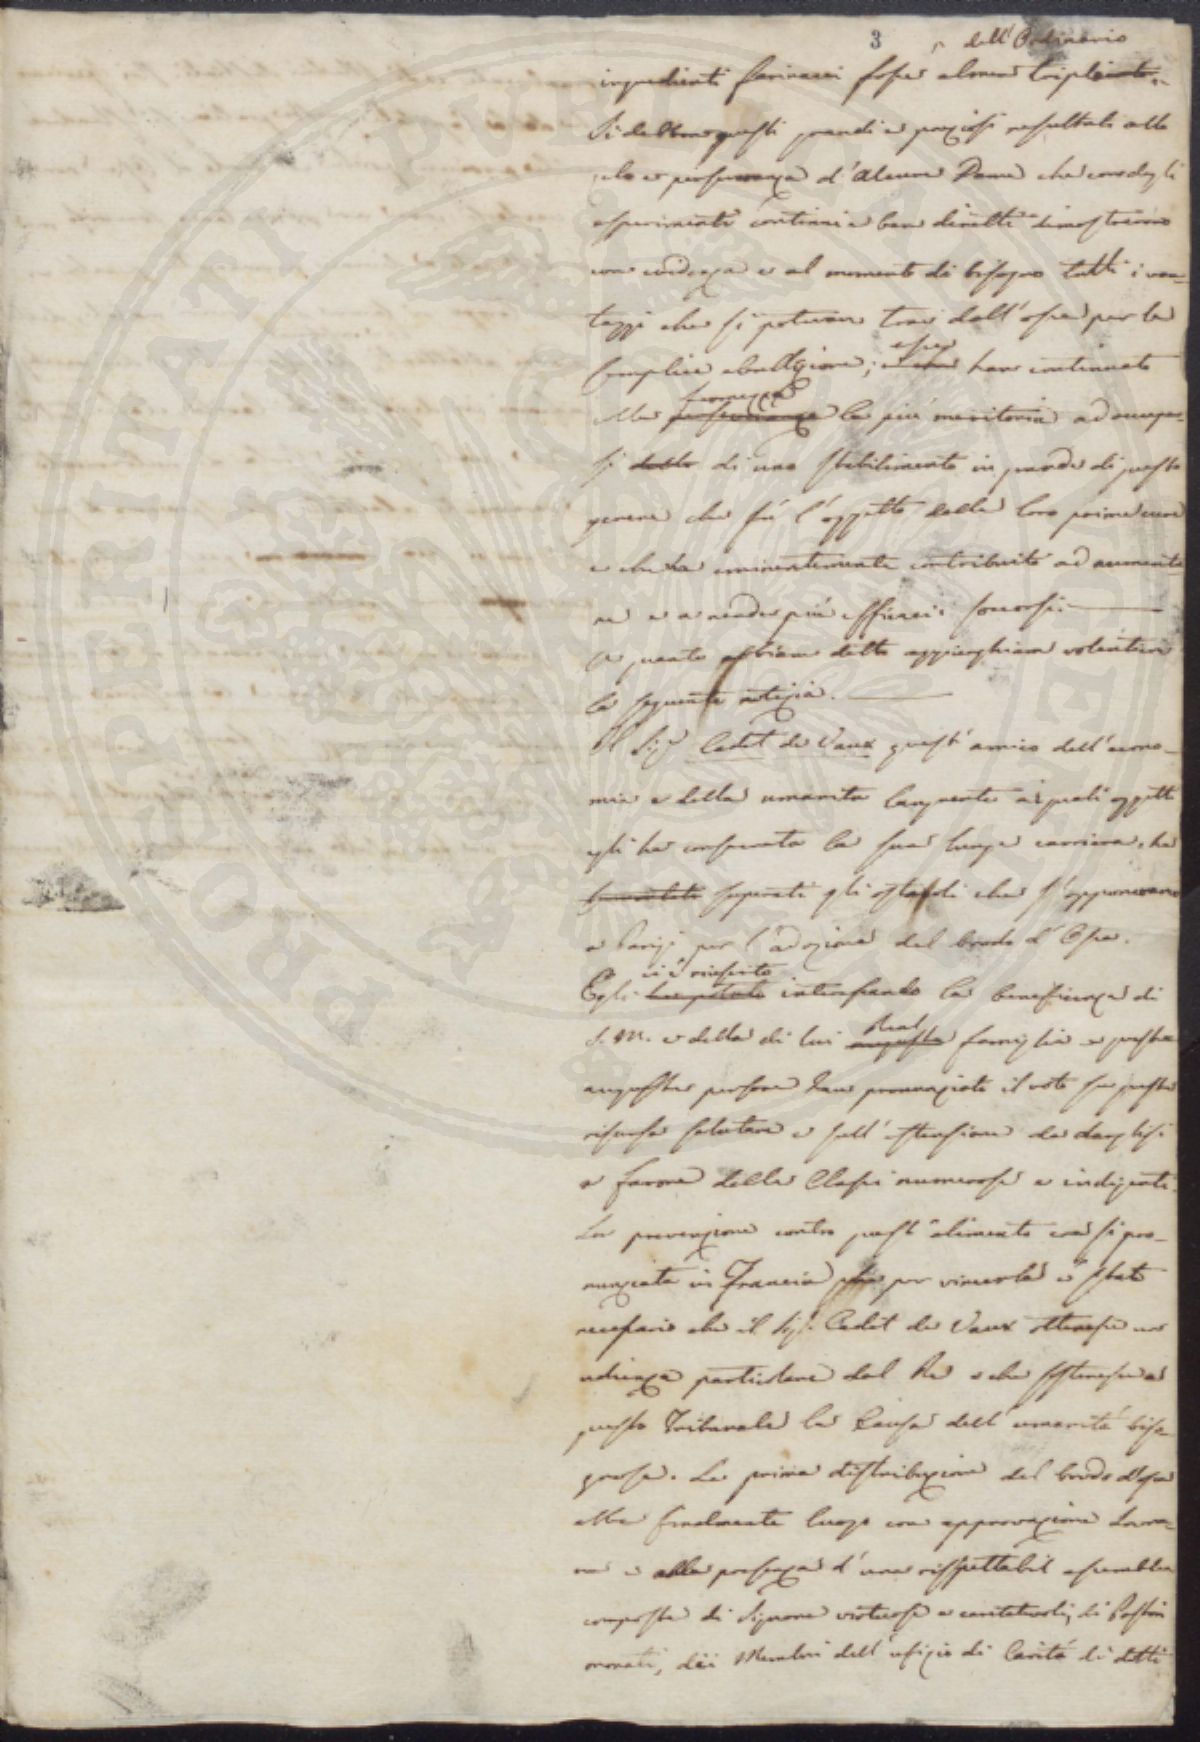 3
dell'Ordinario
ingredienti farinacei fosse almeno triplicato.
Si debbono questi grandi e preziosi resultati allo
zelo e perseveranza d'alcune Dame che con degli
esperimenti continui e ben diretti dimostrarono
con evidenza e al momento di bisogno tutti i van-
taggi che si potevan trar dall'ossa per la
semplice ebullizione; esse han continuato
colla fermezza
perseveranza la più meritoria ad occupar-
si dello di uno stabilimento in grande di questo
genere che fù l'oggetto delle loro prime cure
e che ha eminentemente contribuito ad aumenta-
re e a render più efficaci i soccorsi.
A quanto abbiam detto aggiunghiam volentieri
la seguente notizia.
Il Sigr Cadet de Vaux quest'amico dell'econo-
mia e della umanità languente ai quali oggetti
egli ha consacrata la sua lunga carriera, ha
superati gli ostacoli che s'opponevano
a Parigi per l'adozione del brodo d'Ossa.
ci è riuscito
Egli ha potuto interessando la beneficenza di
Real
S. M. e della di lui augusta famiglia e queste
auguste persone han pronunziato il voto su questa
risorsa salutare e sull'estensione da darglisi
a favore delle Classi numerose e indigenti.
La prevenzione contro quest'alimento era si pro-
nunziata in Francia che per vincerla è stato
necessario che il Sigr Cadet de Vaux ottenesse un
udienza particolare dal Re e che sostenesse a
questo Tribunale la Causa dell'umanità biso-
gnosa. La prima distribuzione del brodo d'ossa
ebbe finalmente luogo con approvazione Sovra-
na e alla presenza d'una rispettabil assemblea
composta di Signore virtuose e caritatevoli, di Pastori
onorati, dei Membri dell'ufizio di Carità di detti